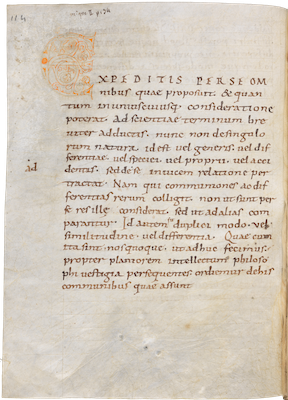 EXPEDITIS PER SE OM
nibus quae proposuit. & quan
tum in uniuscuiusq; consideratione
poterat. Ad scientiae terminum bre
uiter adductis. nunc non desingulo
rum natura id est uel generis. uel dif
ad
ferentiae. uel speciei. uel proprii. uel acci
dentis. sed de se inuicem relatione per
tractat. Nam qui communiones ac dif
ferentias rerum colligit. non ut sunt per
se res illae considerat. sed ut ad alias com
parantur. Id autem duplici modo. uel
similitudine. uel differentia. Quae cum
ita sint nos quoque. ut adhuc fecimus.
propter planiorem intellectum philoso
phi uestigia persequentes ordiemur de his
communibus quae assunt